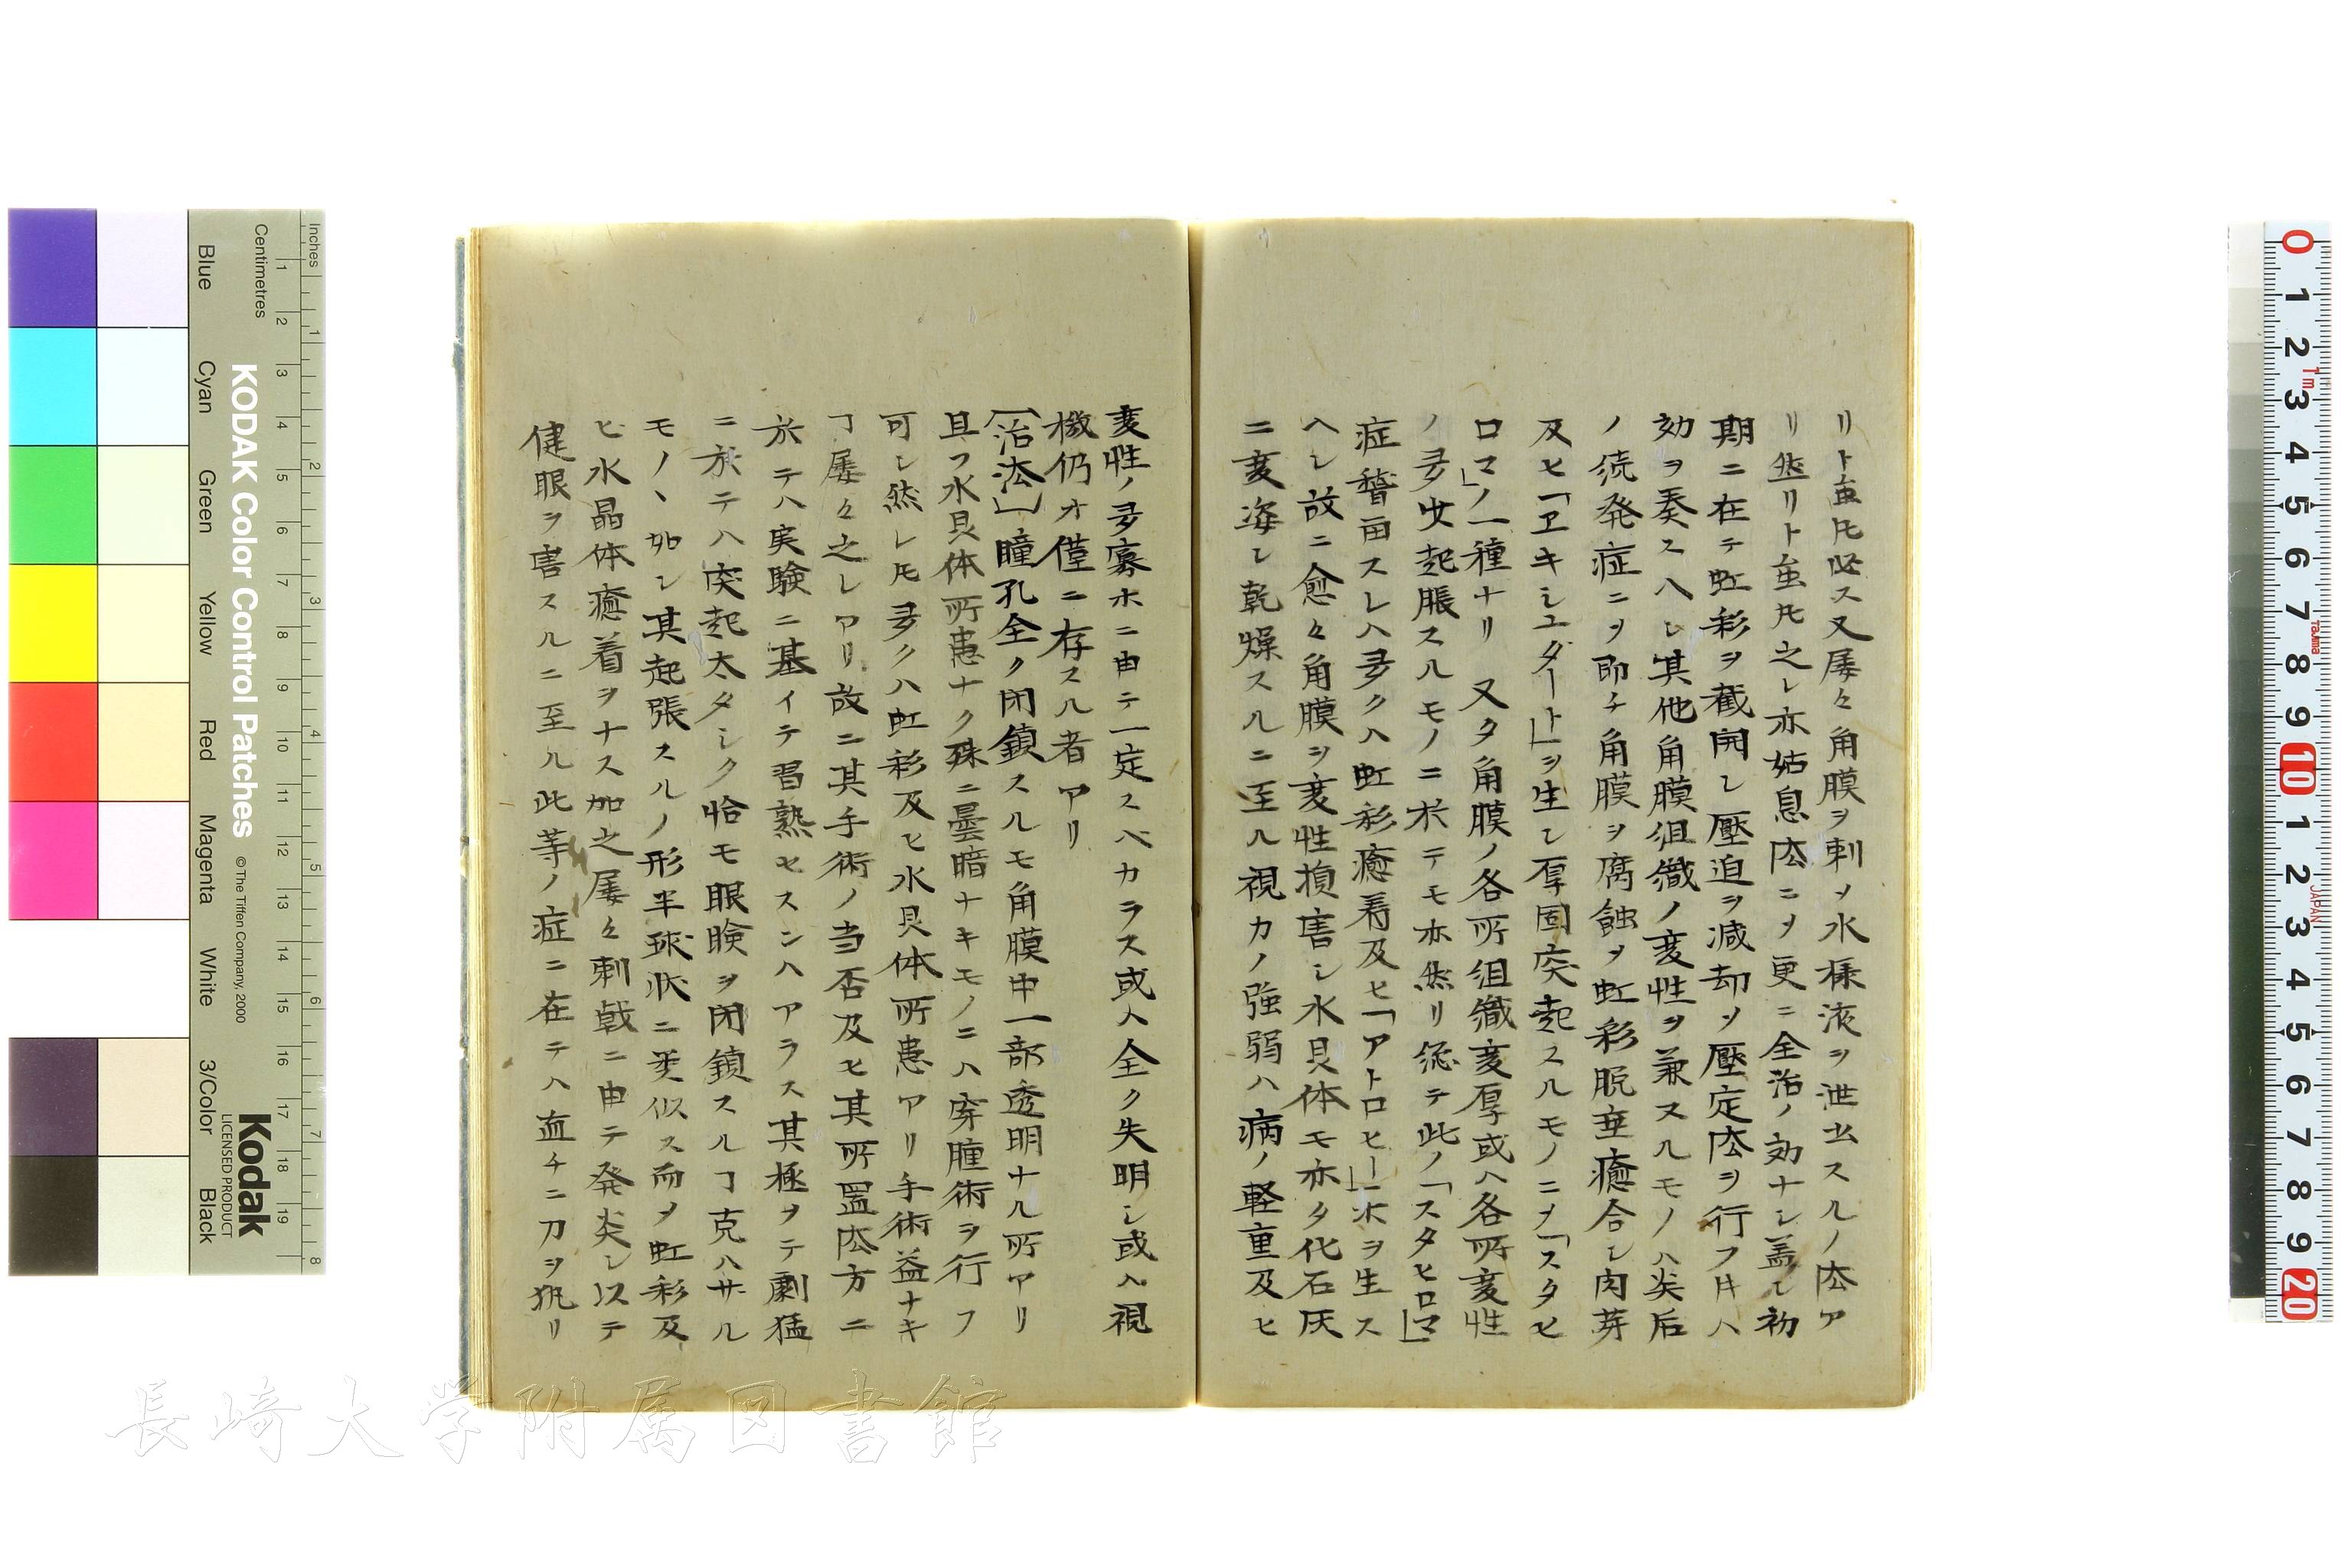 リト虽𪜈必ス又屡々角膜ヲ刺ヲ水様液ヲ泄出スルノ法ア
リ然リト虽𪜈之レ亦姑息法ニヲ更ニ全治ノ効ナシ蓋シ初
期ニ在テ虹彩ヲ截開シ壓迫ヲ減却ソ壓定法ヲ行フ片ハ
効ヲ奏スヘシ其他角膜組織ノ変性ヲ兼ヌルモノハ尖后
ノ続発症ニヲ即チ角膜ヲ腐蝕ヲ虹彩脱垂癒合シ肉芽
及ヒ「ヱキシユダート」ヲ生シ厚固突起スルモノニヲ「スタヒ
ロマ」ノ一種ナリ 又タ角膜ノ各所組織変厚或ハ各所変性
ノ多少起脹スルモノニ於テモ亦然リ総テ此ノ「スタヒロマ」
症稽留スレハ多クハ虹彩癒着及ヒ「アトロヒー」ホヲ生ス
ヘシ故ニ愈々角膜ヲ変性損害シ水晶体モ亦タ化石灰
ニ変姿シ乾燥スルニ至ル視力ノ強弱ハ病ノ軽重及ヒ
変性ノ多寡ホニ由テ一定スベカラス或ハ全ク失明シ或ハ視
機仍オ僅ニ存スル者アリ
「治法」瞳孔全ク閉鎖スルモ角膜中一部透明ナル所アリ
且フ水晶体所患ナク殊ニ曇暗ナキモノニハ穿瞳術ヲ行フ
可シ然レ𪜈多クハ虹彩及ヒ水晶体所患アリ手術益ナキ
ヿ屡々之レアリ故ニ其手術ノ当否及ヒ其所置法方ニ
於テハ実験ニ基イテ習熟セスンハアラス其極ヲテ劇猛
ニ於テハ突起太タシク恰モ眼瞼ヲ閉鎖スルヿ克ハサル
モノヽ如シ其起張スルノ形半球状ニ類似ス而ヲ虹彩及
ヒ水晶体癒着ヲナス加之屡々刺戟ニ由テ発炎シ以テ
健眼ヲ害スルニ至ル此等ノ症ニ在テハ直チニ刀ヲ執リ
長崎大学附属図書館
Inches
Centimetres
KODAK Color Control Patches
© The Tiffen Company, 2000
Kodak
LICENSED PRODUCT
Blue
Cyan
Green
Yellow
Red
Magenta
White
3/Color
Black
1 2 3 4 5 6 7 8 9 10 11 12 13 14 15 16 17 18 19
1 2 3 4 5 6 7 8
0 1 2 3 4 5 6 7 8 9 10 1 2 3 4 5 6 7 8 9 20
1m
Tajima
JAPAN